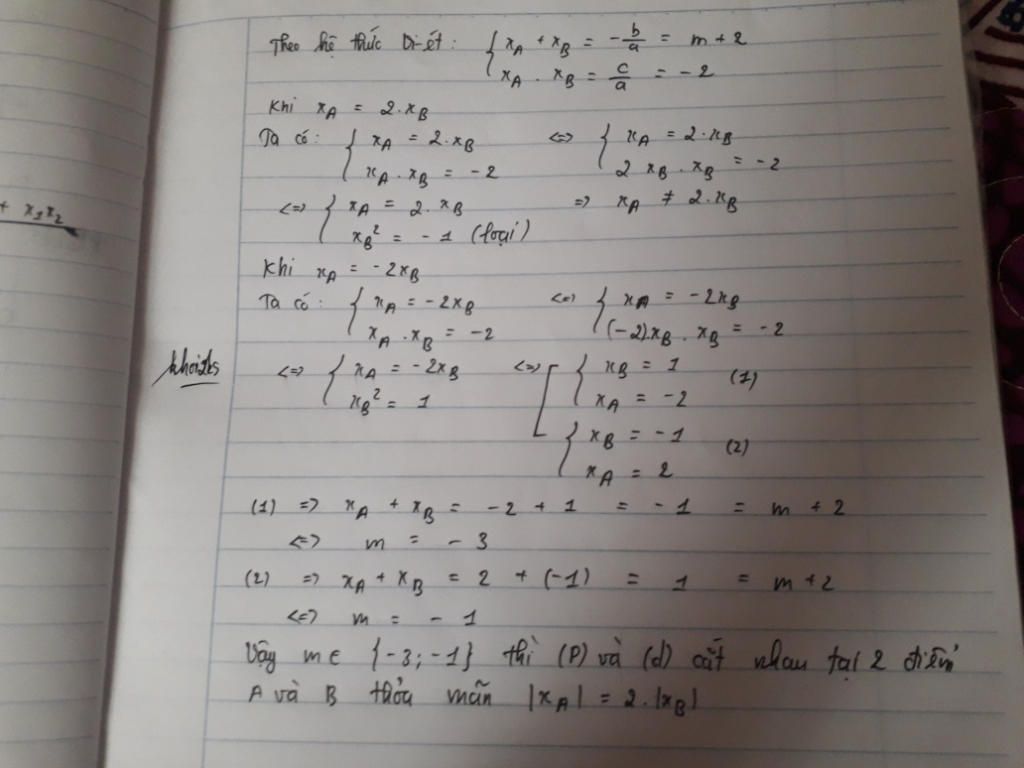 + x₁x₂
Theo hệ thức Vi-ét: { x_A + x_B = -b/a = m + 2
x_A . x_B = c/a = -2
Khi x_A = 2.x_B
Ta có: { x_A = 2.x_B <=> { x_A = 2.x_B
x_A . x_B = -2 2 x_B . x_B = -2
<=> { x_A = 2.x_B => x_A ≠ 2.x_B
x_B² = -1 (loại)
Khi x_A = -2x_B
Ta có: { x_A = -2x_B <=> { x_A = -2x_B
x_A . x_B = -2 (-2).x_B . x_B = -2
<=> { x_A = -2x_B <=> [ { x_B = 1 (1)
x_B² = 1 x_A = -2
{ x_B = -1 (2)
x_A = 2
(1) => x_A + x_B = -2 + 1 = -1 = m + 2
<=> m = -3
(2) => x_A + x_B = 2 + (-1) = 1 = m + 2
<=> m = -1
Vậy m ∈ {-3; -1} thì (P) và (d) cắt nhau tại 2 điểm
A và B thỏa mãn |x_A| = 2.|x_B|